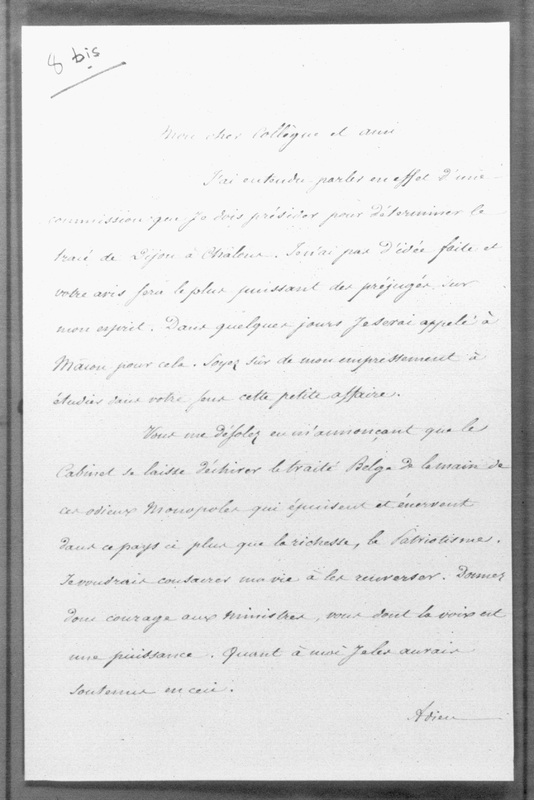 8 bis
Mon cher Collègue et ami
J'ai entendu parler en effet d'une
commission que Je dois présider pour déterminer le
tracé de Dijon à Châlons. Je n'ai pas d'idée faite et
votre avis sera le plus puissant des préjugés sur
mon esprit. Dans quelques jours Je serai appelé à
Mâcon pour cela. Soyez sûr de mon empressement à
étudier dans votre sens cette petite affaire.
Vous me désolez en m'annonçant que le
Cabinet se laisse déchirer le traité Belge de la main de
ces odieux Monopoles qui épuisent et énervent
dans ce pays ci plus que la richesse, le Patriotisme.
Je voudrais consacrer ma vie à les renverser. Donnez
donc courage aux Ministres, vous dont la voix est
une puissance. Quant à moi Je les aurais
soutenus en ceci.
Adieu